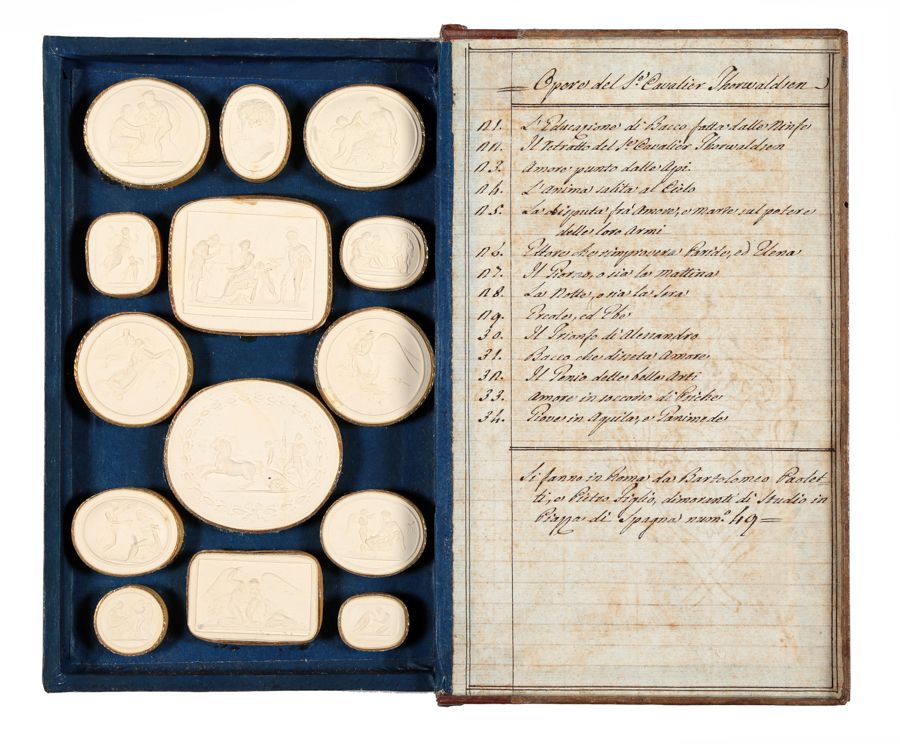 = Opere del S.r Cavalier Thorwaldsen
n 1. L'Educazione di Bacco fatta dalle Ninfe
n n. Il Ritratto del S.r Cavalier Thorwaldsen
n 3. Amore punto dalle Api
n 4. L'Anima salita al Cielo
n 5. La disputa frà Amore, e Marte sul potere
delle loro Armi
n 6. Ettore che rimprovera Paride, ed Elena
n 7. Il Giorno, o sia la mattina
n 8. La Notte, o sia la sera
n 9. Ercole, ed Ebe
30. Il Trionfo di Alessandro
31. Bacco che disseta Amore
3n. Il Genio delle belle Arti
33. Amore in soccorso di Psiche
34. Giove in Aquila, e Ganimede
Si fanno in Roma da Bartolomeo Paolet-
ti, e Pietro Figlio, dimoranti di Studio in
Piazza di Spagna num.o 49 =